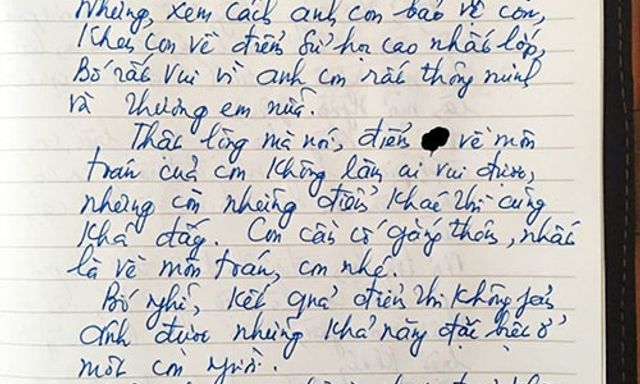 Nhưng, xem cách anh con bảo vệ con,
khen con về điểm Sử học cao nhất lớp,
Bố rất vui vì anh con rất thông minh
và thương em nữa.
Thật lòng mà nói, điểm về môn
toán của con không làm ai vui được,
nhưng còn những điểm khác thì cũng
khá đấy. Con cần cố gắng thêm, nhất
là về môn toán, con nhé.
Bố nghĩ, kết quả điểm thi không phản
ánh được những khả năng đặc biệt ở
một con người.